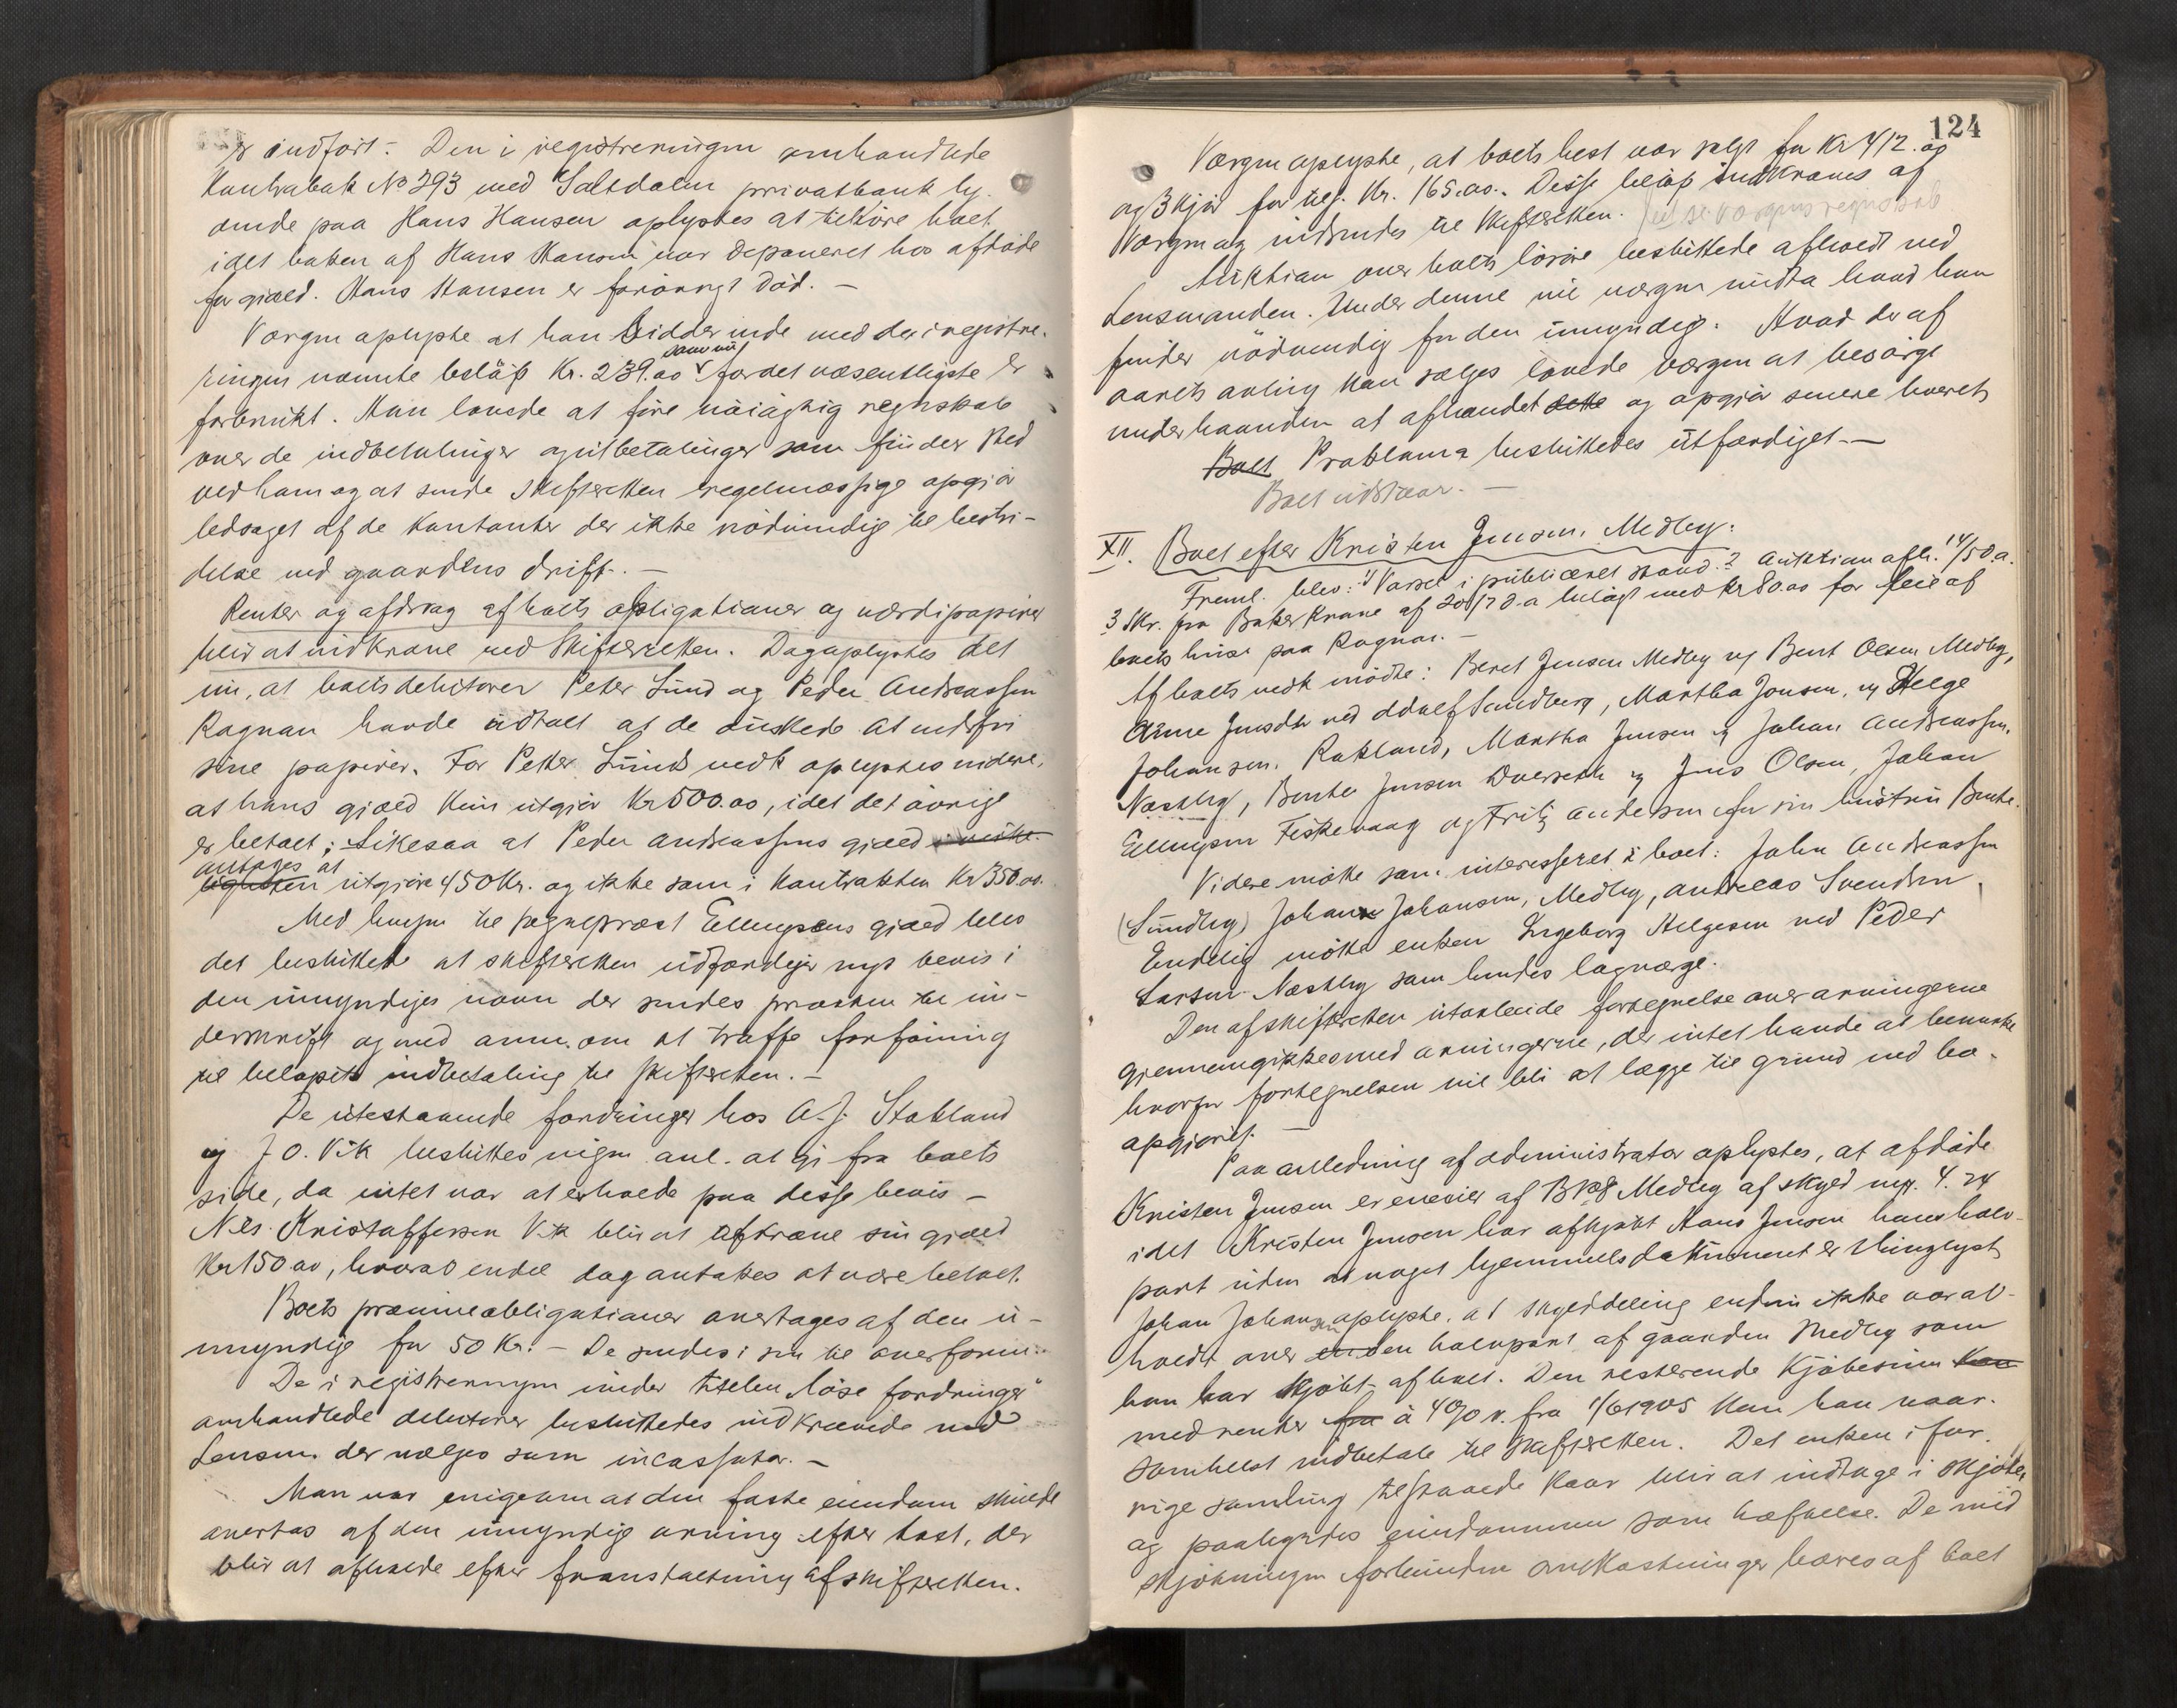 er indført. Den i registreringen omhandlede
Kontrabok No 293 med Saltdalen privatbank ly-
dende paa Hans Hansen oplystes at tilhøre boet
idet boken af Hans Hansen var deponeret hos afdøde
for gjæld. Hans Hansen er forøvrigt død. –
Værgen oplyste at han sidder inde med det i registre-
ringen nævnte beløp Kr. 239.00 som nu for det væsentligste er
forbrukt. Han lovede at føre nøiagtig regnskab
over de indbetalinger og utbetalinger som finder sted
ved ham og at sende skifteretten regelmæssige opgjør
ledsaget af de kontanter der ikke nødvendig til bestri-
delse ved gaardens drift. –
Renter og afdrag af boets obligationer og værdipapirer
blir at indkræve ved Skifteretten. Dog oplystes det
nu, at boets debitorer Peter Lund og Peder Andreassen
Rognan havde udtalt at de ønskede at indfri
sine papirer. For Petter Lunds vedk oplystes videre,
at hans gjæld kun utgjør Kr 500.00, idet det øvrige
er betalt; likesaa at Peder Andreassens gjæld
antages at utgjøre 450 Kr. og ikke som i kontrakten Kr 350.00.
Med hensyn til sogneprest Ellingsens gjæld blev
det besluttet at skifteretten udfærdiger nyt bevis i
den umyndiges navn der sendes presten til un-
derskrift og med anm. om at træffe forføining
til beløpets indbetaling til skifteretten. –
De utestaaende fordringer hos A. J. Stokland
og J O. Vik besluttes ingen anl. at gi fra boets
side, da intet var at erholde paa disse bevis –
Nils Kristoffersen Vik blir at afkræve sin gjæld
Kr 150.00, hvorav endel dog antakes at være betalt.
Boets præmieobligationer overtages af den u-
myndige for 50 Kr. – De sendes i sin til overform.
De i registreringen under titelen "løse fordringer"
omhandlede debitorer besluttedes indkrævede ved
Lensm. der vælges som incassator. –
Man var enige om at den faste eiendom skulde
overtas af den umyndige arving efter takst, der
blir at afholde efter foranstaltning af skifteretten.
124
Værgen oplyste, at boets hest var solgt for Kr 412. og
og 3 kjør for tils. Kr. 165.00. Disse beløp indkræves af
Værgen og indsendes til skifteretten.
Auktion over boets løsøre besluttede afholdt ved
Lensmanden. Under denne vil værgen undta hvad han
finder nødvendig for den umyndig. Hvad der af
aarets avling kan sælges lovede værgen at besørge
underhaanden at afhændet og opgjør senere leverets
Boet Proklama besluttedes utfærdiget. –
Boet udstaar. –
XII. Boet efter Kristen Jensen, Medby.
Freml. blev: 1) Varsel i publiceret stand. 2 Auktion afh. 14/5 d.a.
3 Skr. fra Baker Krane af 20/7 d.a bilagt med Kr 80.00 for leie af
boets hus paa Rognan. –
Af boets vedk mødte: Beret Jensen Medby og Bent Olsen Medby,
Arne Jensdtr ved Adolf Sundberg, Martha Jonsen, og Helge
Johansen. Rokland, Martha Jensen og Johan Andreassen.
Næstby, Bente Jensen Dverseth og Jens Olsen, Johan
Ellingsen Fiskevaag og Fritz Andersen for sin hustru Bente.
Videre møtte som interesseret i boet: John Andreassen
(Sundby) Johan Johansen, Medby, Andreas Svendsen.
Endelig møtte enken Ingeborg Helgesen ved Peder
Larsen Næstby som hendes lagværge.
Den af skifteretten utarbeide fortegnelse over arvingerne
gjennemgikkes med arvingerne, der intet havde at bemerke
hvorfor fortegnelsen vil bli at lægge til grund ved bo-
opgjøret. –
Paa anledning af administrator oplystes, at afdøde
Kristen Jensen er eneeier af B No 8 Medby af skyld my. 4.24
idet Kristen Jensen har afkjøbt Hans Jensen hans halv-
part uden at noget hjemmelsdokument er thinglyst
Johan Johansen oplyste, at skylddeling endnu ikke var av-
holdt over den halvpart af gaarden Medby som
han har kjøbt af boet. Den resterende kjøbesum
med renter à 4 % p. fra 1/6 1905 kan han naar-
somhelst indbetale til skifteretten. Det enken i for-
rige samling tilstaaede kaar blir at indtage i skjøtet
og paahvile eiendommen som heftelse. De med
skjøtningen forbundne omkostninger bæres af boet